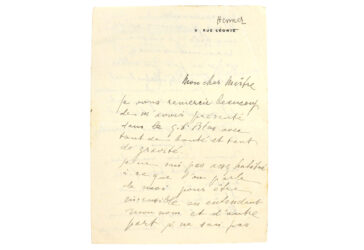 Hermes
8 RUE LÉONIE
Mon cher Maître
je vous remercie beaucoup
de m'avoir présenté
dans le Gil Blas avec
tant de bonté et tant
de gravité
je ne suis pas assez habitué
à ce que l'on parle
de moi pour être
insensible en entendant
mon nom et d'autre
part je ne suis pas